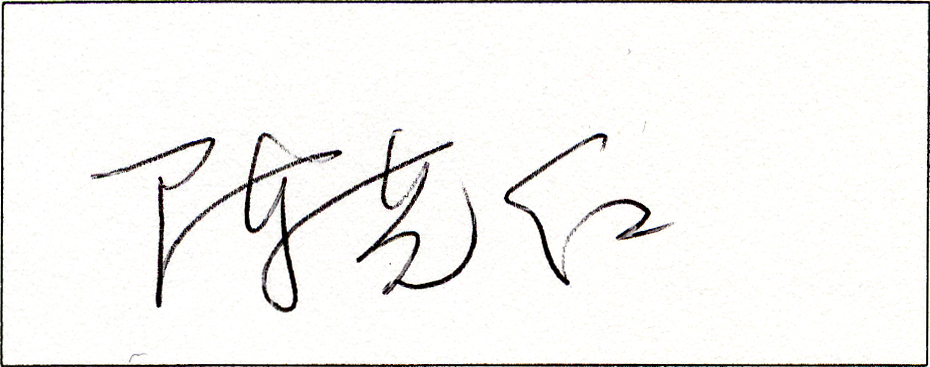 陈克仁